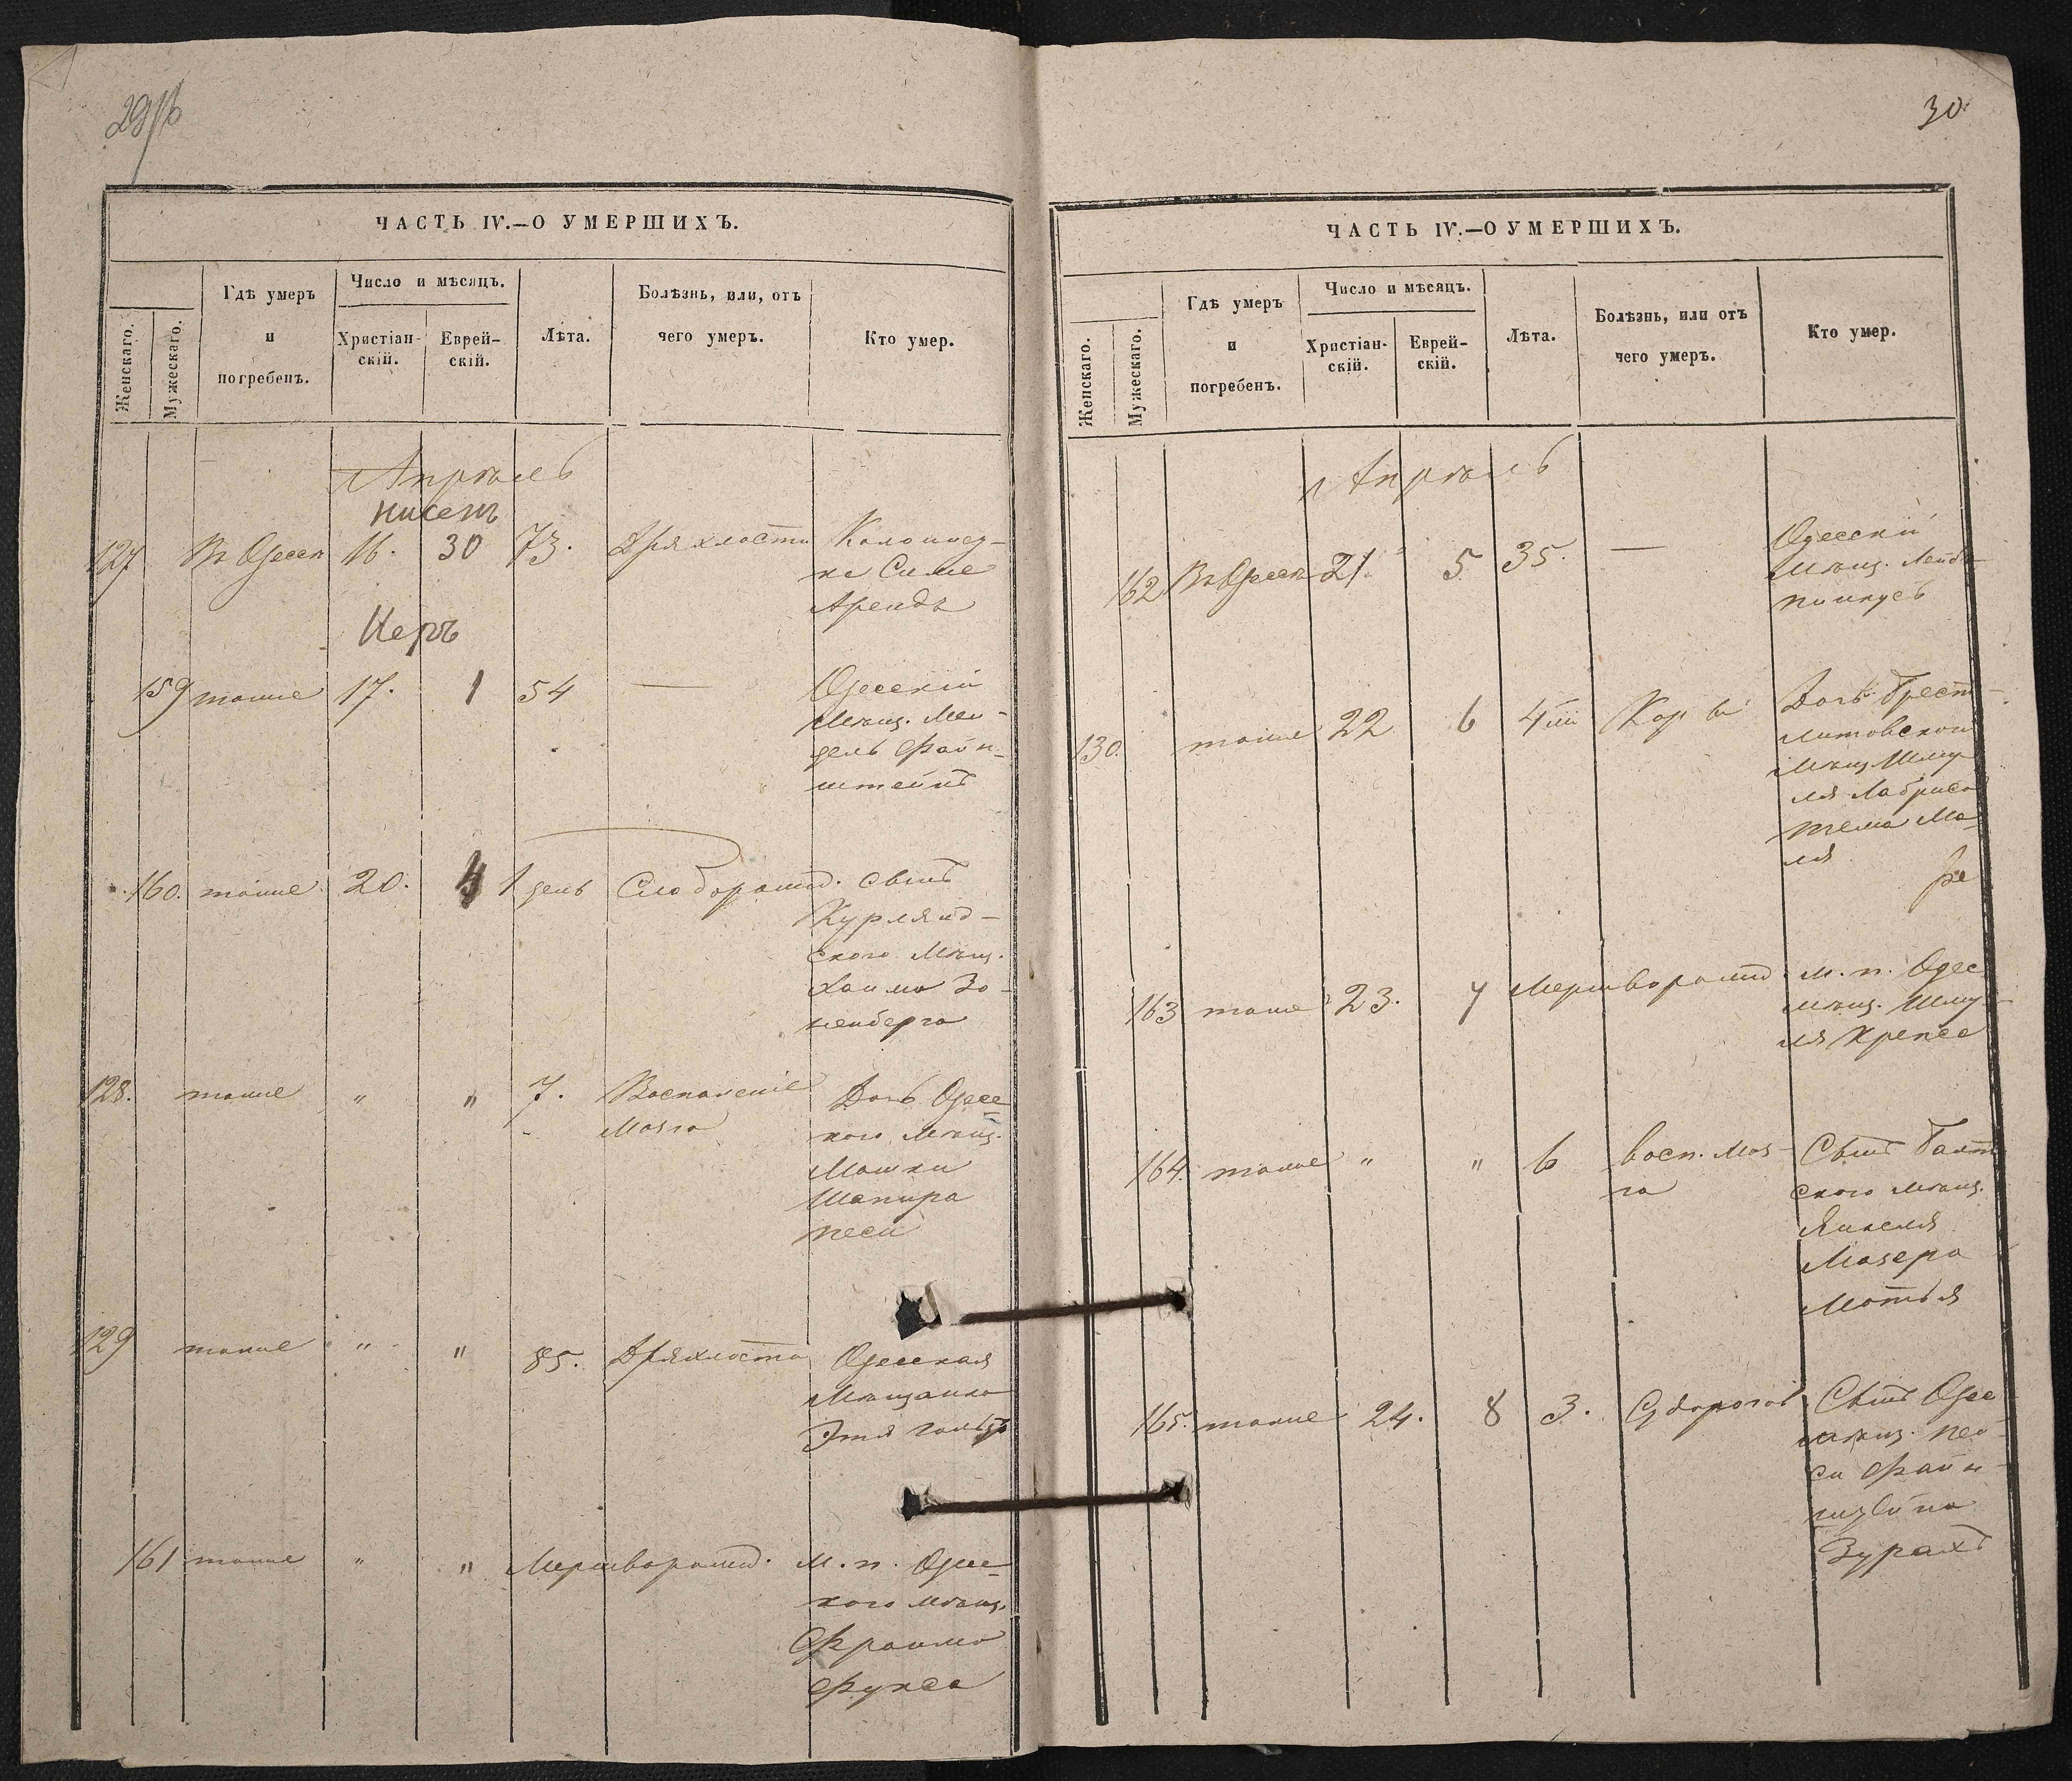 29/б
ЧАСТЬ IV.—О УМЕРШИХЪ.
Женскаго.
Мужескаго.
Гдѣ умеръ
и
погребенъ.
Число и мѣсяцъ.
Христіан-
скій.
Еврей-
скій.
Лѣта.
Болѣзнь, или, отъ
чего умеръ.
Кто умер.
Апрѣль
нисень
127 Въ Одессѣ 16. 30 73. Дряхлости
Симе
Арендъ
Иеръ
159 тоже 17. 1 54 — Одесскій
Мѣщ. Мен-
дель Файн-
штейнъ
160. тоже 20. 4 1 день Слаборожд. сынъ
Курлянд-
скаго Мѣщ.
Хаима Зо-
ненберга
128. тоже " " 7. Воспаленіе
Мозга
Дочь Одесс-
каго Мѣщ.
Мошки
Шапира
песи
129 тоже " " 85. Дряхлости Одесская
Мѣщанка
Этя
161 тоже " " Мертворожд. М. п. Одес-
каго мѣщ.
Фроима
Фукса
30
ЧАСТЬ IV.—О УМЕРШИХЪ.
Женскаго.
Мужескаго.
Гдѣ умеръ
и
погребенъ.
Число и мѣсяцъ.
Христіан-
скій.
Еврей-
скій.
Лѣта.
Болѣзнь, или отъ
чего умеръ.
Кто умер.
Апрѣль
162 Въ Одессѣ 21. 5 35. — Одесскій
Мѣщ. Лейбъ
пинкусъ
130. тоже 22 6 4 Корь Дочь Брест-
литовскаго
Мѣщ. Шму-
ля
Ма-
ля
163 тоже 23. 7 Мертворожд. м. п. Одес
мѣщ. Шму-
ля Крепса
164. тоже " " 6 восп. моз-
га
Сынъ
скаго мѣщ.
Янкеля
Мазера
Мотья
165. тоже 24. 8 3. Судорогов Сынъ Одес
мѣщ. пей-
си Файн-
Зурахъ